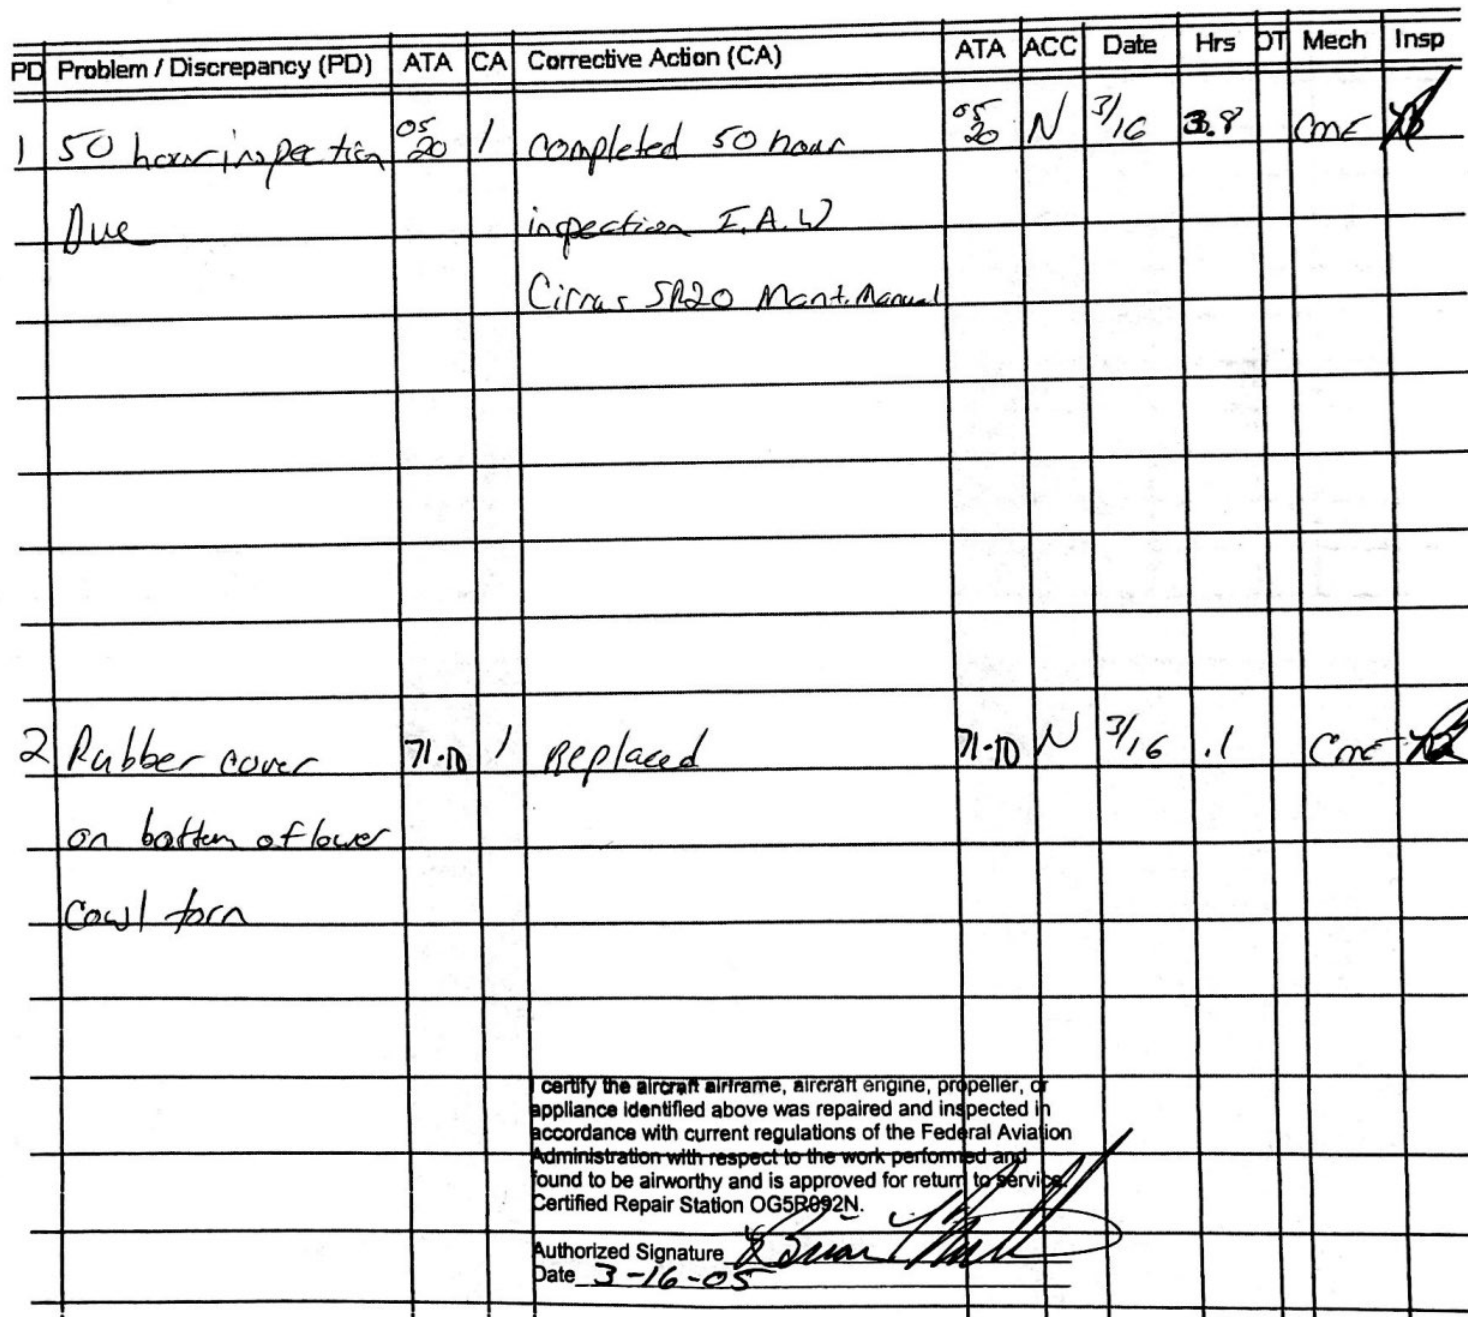 PD Problem / Discrepancy (PD) ATA CA Corrective Action (CA) ATA ACC Date Hrs OT Mech Insp
1 50 hour inspection 05 20 1 completed 50 hour 05 20 N 3/16 3.8 CME
Due inspection I.A.W
Cirrus SR20 Mant. Manual
2 Rubber cover 71-10 1 Replaced 71-10 N 3/16 .1 CME
on bottom of lower
Cowl torn
I certify the aircraft airframe, aircraft engine, propeller, or
appliance identified above was repaired and inspected in
accordance with current regulations of the Federal Aviation
Administration with respect to the work performed and
found to be airworthy and is approved for return to service.
Certified Repair Station OG5R092N.
Authorized Signature Brian
Date 3-16-05